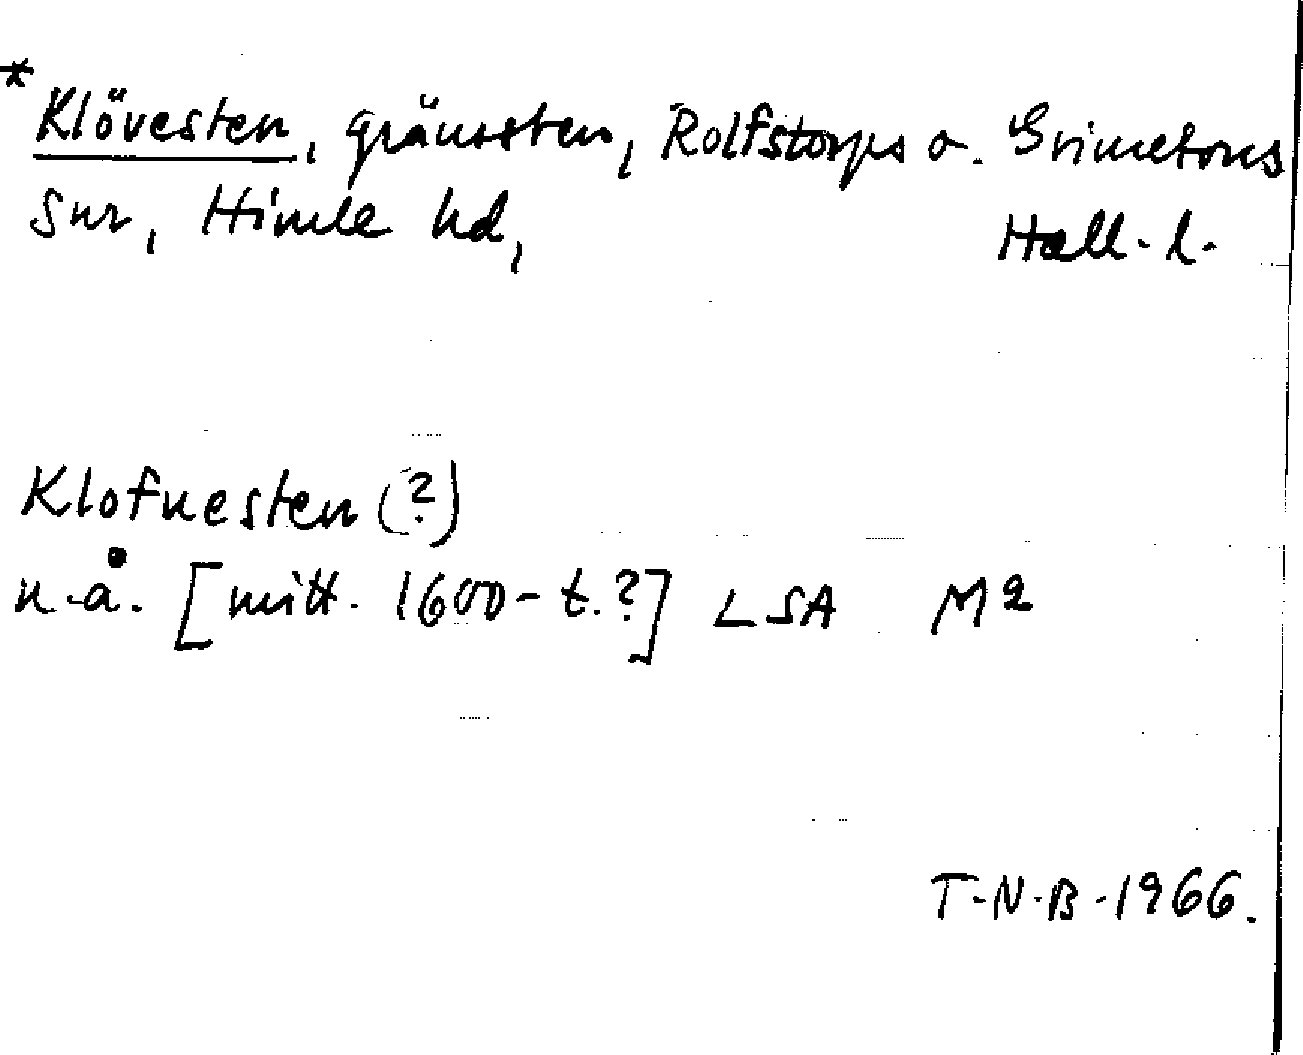 * Klövesten, gränssten, Rolfstorps o. Grimetons
snr, Himle hd,
Hall. l.
Klofuesten (?)
u.å. [mitt. 1600-t.?] LSA M2
T.N.B. 1966.